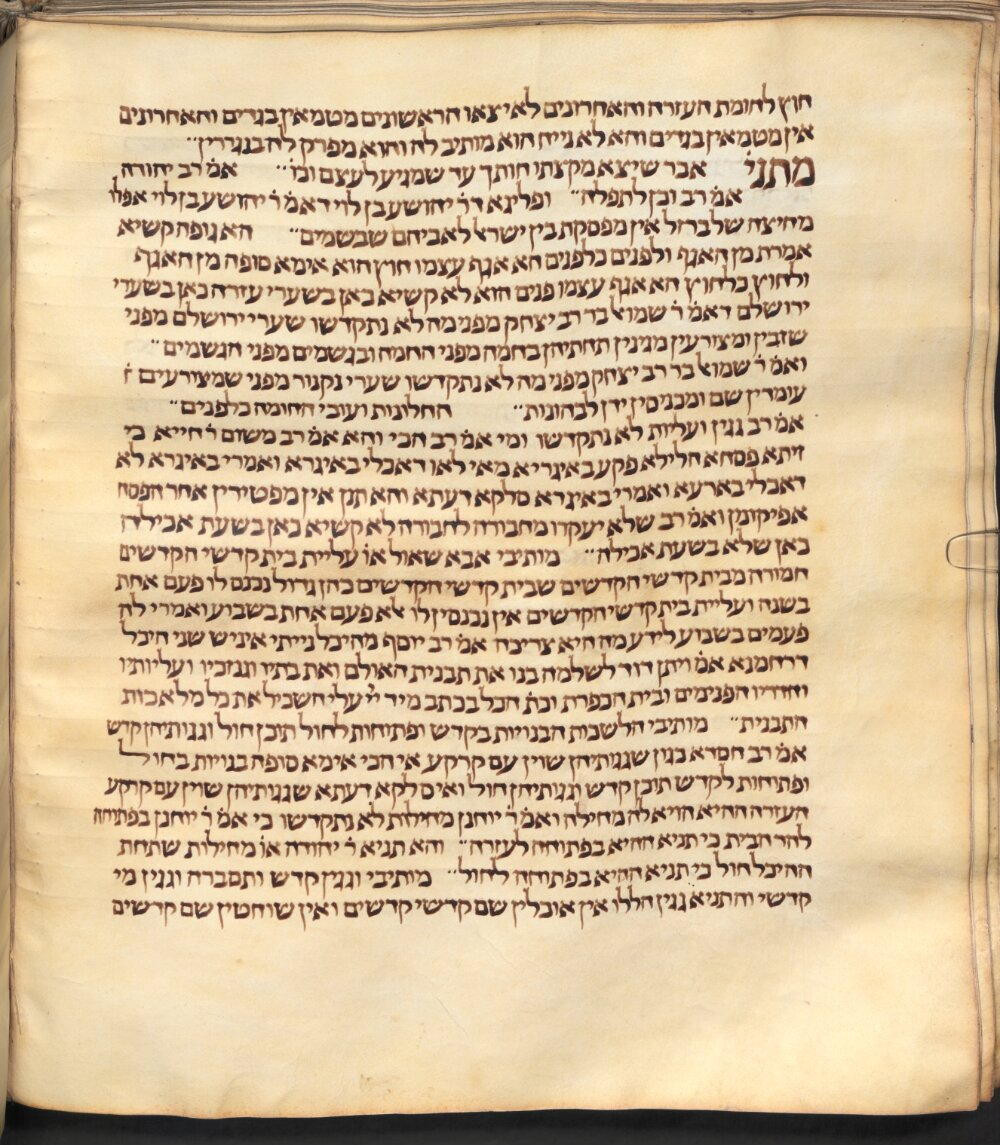 חוץ לחומת העזרה והאחרונים לא יצאו הראשונים מטמאין בגדים והאחרונים
אין מטמאין בגדים והא לא נייח הוא מותיב לה והוא מפרק לה בנגררין״
מתני׳ אבר שיצא מקצתו חותך עד שמגיע לעצם וכו׳ ״ אמ׳ רב יהודה
אמ׳ רב וכן לתפלה״ ופליגא דר׳ יהושע בן לוי דאמ׳ ר׳ יהושע בן לוי אפלו
מחיצה שלברזל אין מפסקת בין ישראל לאביהם שבשמים״ הא גופה קשיא
אמרת מן האגף ולפנים כלפנים הא אגף עצמו חוץ הוא אימא סופה מן האגף
ולחוץ כלחוץ הא אגף עצמו פנים הוא לא קשיא כאן בשערי עזרה כאן בשערי
ירושלם דאמ׳ ר׳ שמואל בר רב יצחק מפני מה לא נתקדשו שערי ירושלם מפני
שזבין ומצורעין מגינין תחתיהן בחמה מפני החמה ובגשמים מפני הגשמים״
ואמ׳ ר׳ שמואל בר רב יצחק מפני מה לא נתקדשו שערי נקנור מפני שמצורעים
עומדין שם ומכניסין ידן לבהונות״ החלונות ועובי החומה כלפנים״
אמ׳ רב גגין ועליות לא נתקדשו ומי אמ׳ רב הכי והא אמ׳ רב משום ר׳ חייא כי
זיתא פסחא הלילא פקע באיגריא מאי לאו דאכלי באיגרא ואמרי באיגרא לא
דאכלי בארעא ואמרי באיגרא סלקא דעתא והא תנן אין מפטירין אחר הפסח
אפיקומין ואמ׳ רב שלא יעקרו מחבורה לחבורה לא קשיא כאן בשעת אכילה
כאן שלא בשעת אכילה״ מותיבי אבא שאול או׳ עליית בית קדשי הקדשים
חמורה מבית קדשי הקדשים שבית קדשי הקדשים כהן גדול נכנס לו פעם אחת
בשנה ועליית בית קדשי הקדשים אין נכנסין לו אלא פעם אחת בשבוע ואמרי לה
פעמים בשבוע לידע מה היא צריכה אמ׳ רב יוסף מהיכל נייתי איניש שני היכל
דרחמנא אמ׳ ויתן דוד לשלמה בנו את תבנית האולם ואת בתיו וגנזכיו ועליותיו
וחדריו הפנימים ובית הכפרת וכת׳ הכל בכתב מיד ייי עלי השכיל את כל מלאכות
התבנית״ מותיבי הלשכות הבנויות בקדש ופתוחות לחול תוכן חול וגגותיהן קדש
אמ׳ רב חסדא כגון שגגותיהן שוין עם קרקע אי הכי אימא סופה בנויות בחול
ופתוחות לקדש תוכן קדש וגגותיהן חול ואי סלקא דעתא שגגותיהן שוין עם קרקע
העזרה ההיא הויא לה מחילה ואמ׳ ר׳ יוחנן מחילות לא נתקדשו כי אמ׳ ר׳ יוחנן בפתוחה
להר הבית כי תניא ההיא בפתוחה לעזרה״ והא תניא ר׳ יהודה או׳ מחילות שתחת
ההיכל חול כי תניא ההיא בפתוחה לחול״ מותיבי וגגין קדש ותסברה וגגין מי
קדשי והתניא גגין הללו אין אוכלין שם קדשי קדשים ואין שוחטין שם קדשים